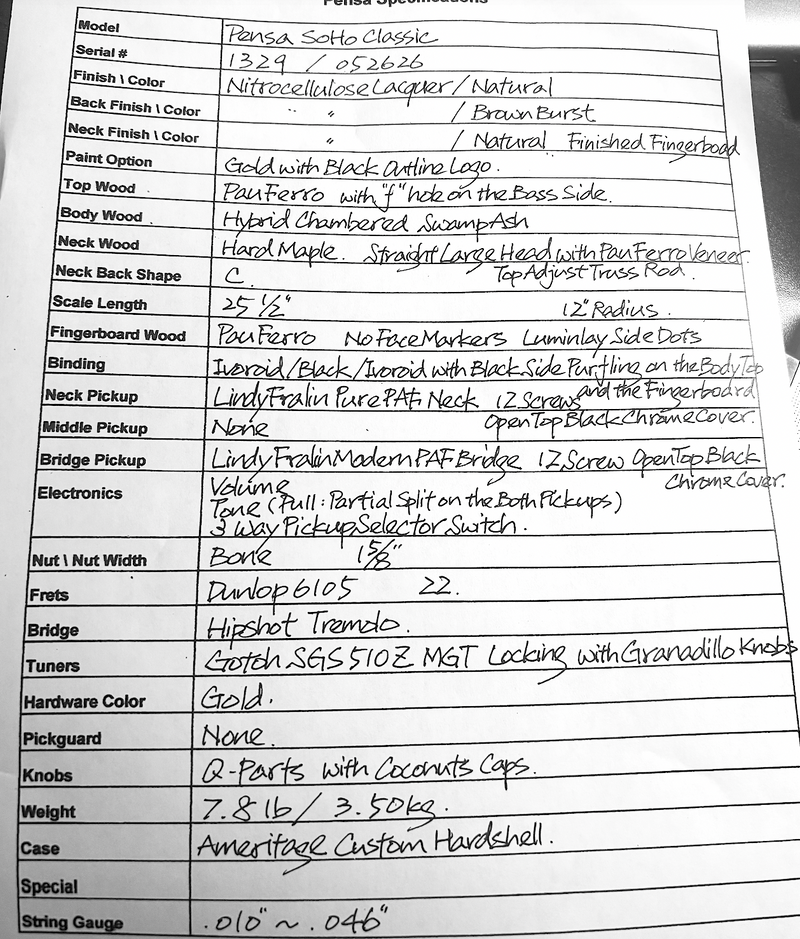 Pensa Specifications
Model Pensa SoHo Classic
Serial # 1329 / 052626
Finish \ Color Nitrocellulose Lacquer / Natural
Back Finish \ Color " " / Brown Burst
Neck Finish \ Color " / Natural Finished Fingerboad
Paint Option Gold with Black Outline Logo.
Top Wood Pau Ferro with "f" hole on the Bass Side.
Body Wood Hybrid Chambered Swamp Ash
Neck Wood Hard Maple. Straight Large Head with Pau Ferro Veneer.
Neck Back Shape C. Top Adjust Truss Rod.
Scale Length 25 1/2" 12" Radius.
Fingerboard Wood Pau Ferro No Face Markers Luminlay Side Dots
Binding Ivoroid/Black/Ivoroid with Black Side Purfling on the Body Top
and the Fingerboard
Neck Pickup Lindy Fralin Pure PAF Neck 12 Screws
Open Top Black Chrome Cover.
Middle Pickup None
Bridge Pickup Lindy Fralin Modern PAF Bridge 12 Screw Open Top Black
Chrome Cover.
Electronics Volume
Tone (Pull: Partial Split on the Both Pickups)
3 Way Pickup Selector Switch.
Nut \ Nut Width Bone 1 5/8"
Frets Dunlop 6105 22.
Bridge Hipshot Tremolo.
Tuners Gotoh SGS510Z MGT Locking with Granadillo Knobs
Hardware Color Gold.
Pickguard None.
Knobs Q-Parts with Coconuts Caps.
Weight 7.8 lb / 3.50 kg.
Case Ameritage Custom Hardshell.
Special
String Gauge .010" ~ .046"